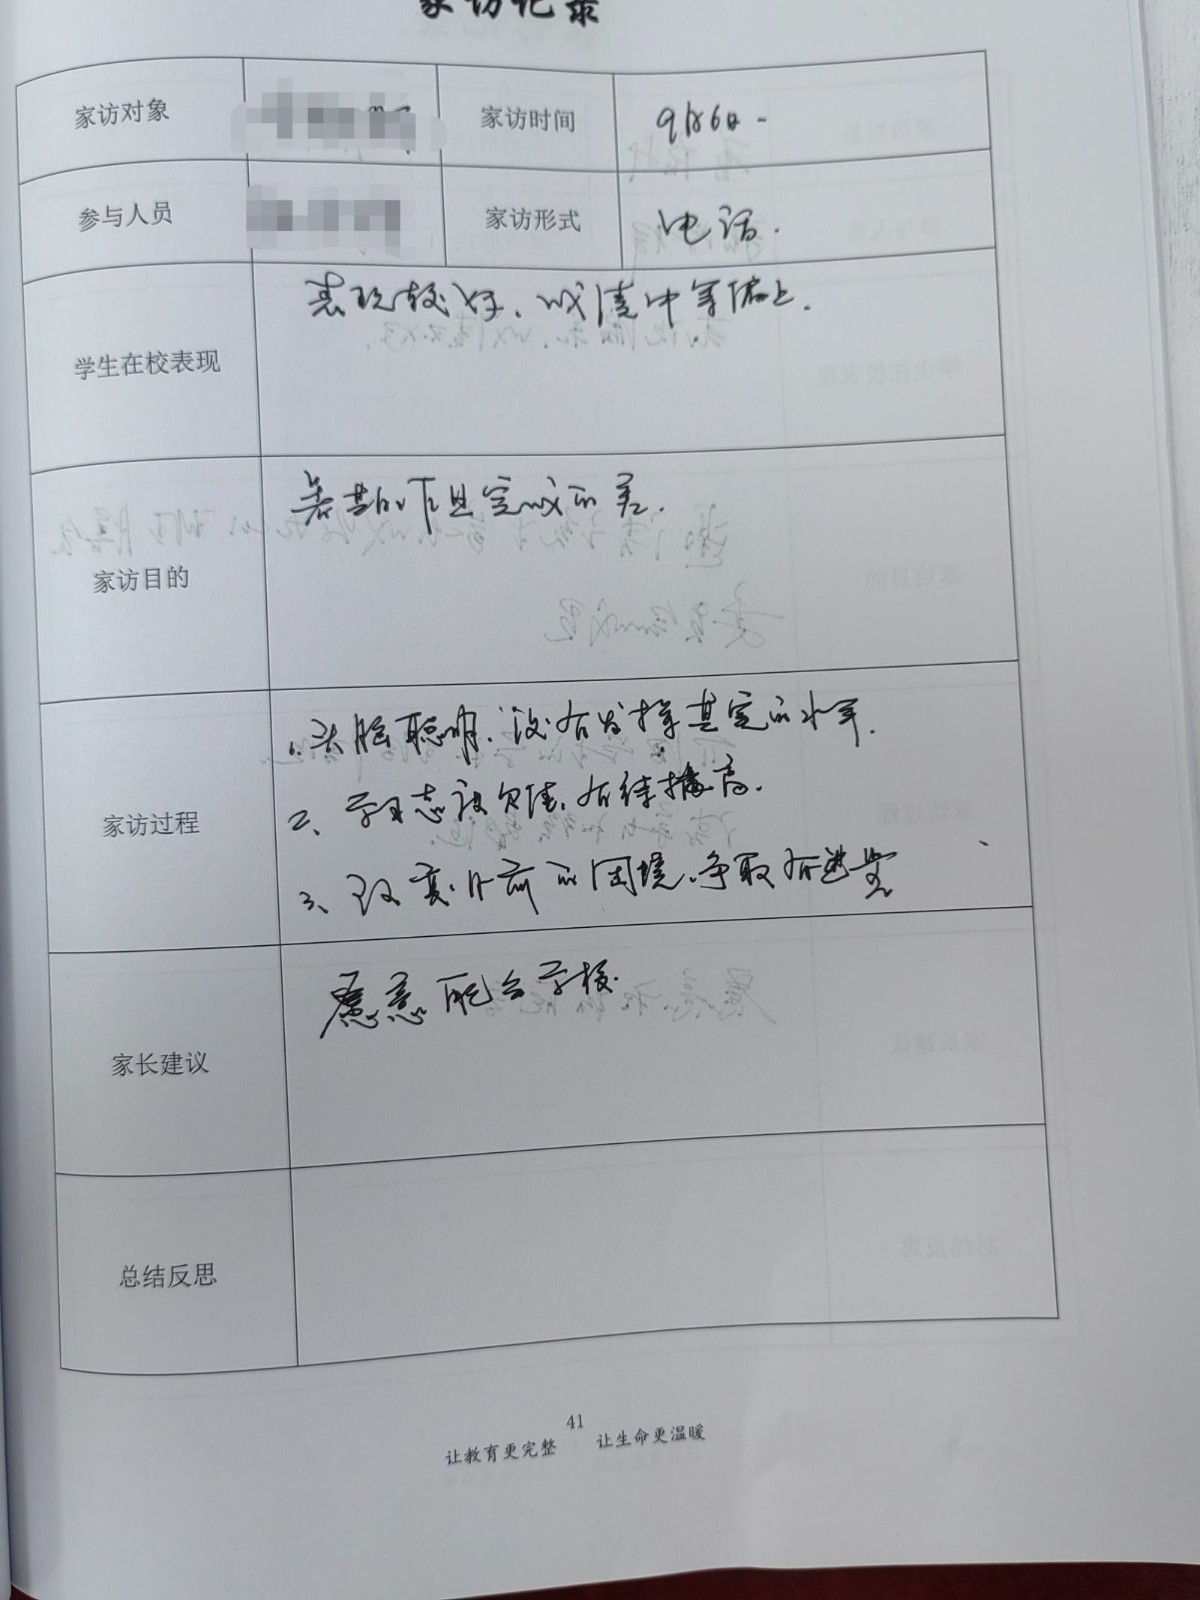 家访记录
家访对象 家访时间 9月6日.
参与人员 家访形式 电话.
学生在校表现 表现较好、成绩中等偏上.
家访目的 暑期作业完成的差.
家访过程
1. 头脑聪明、没有发挥其应的水平.
2、学习态度欠佳、有待提高.
3、改变目前的困境、争取有进步
家长建议 愿意配合学校.
总结反思
41
让教育更完整 让生命更温暖